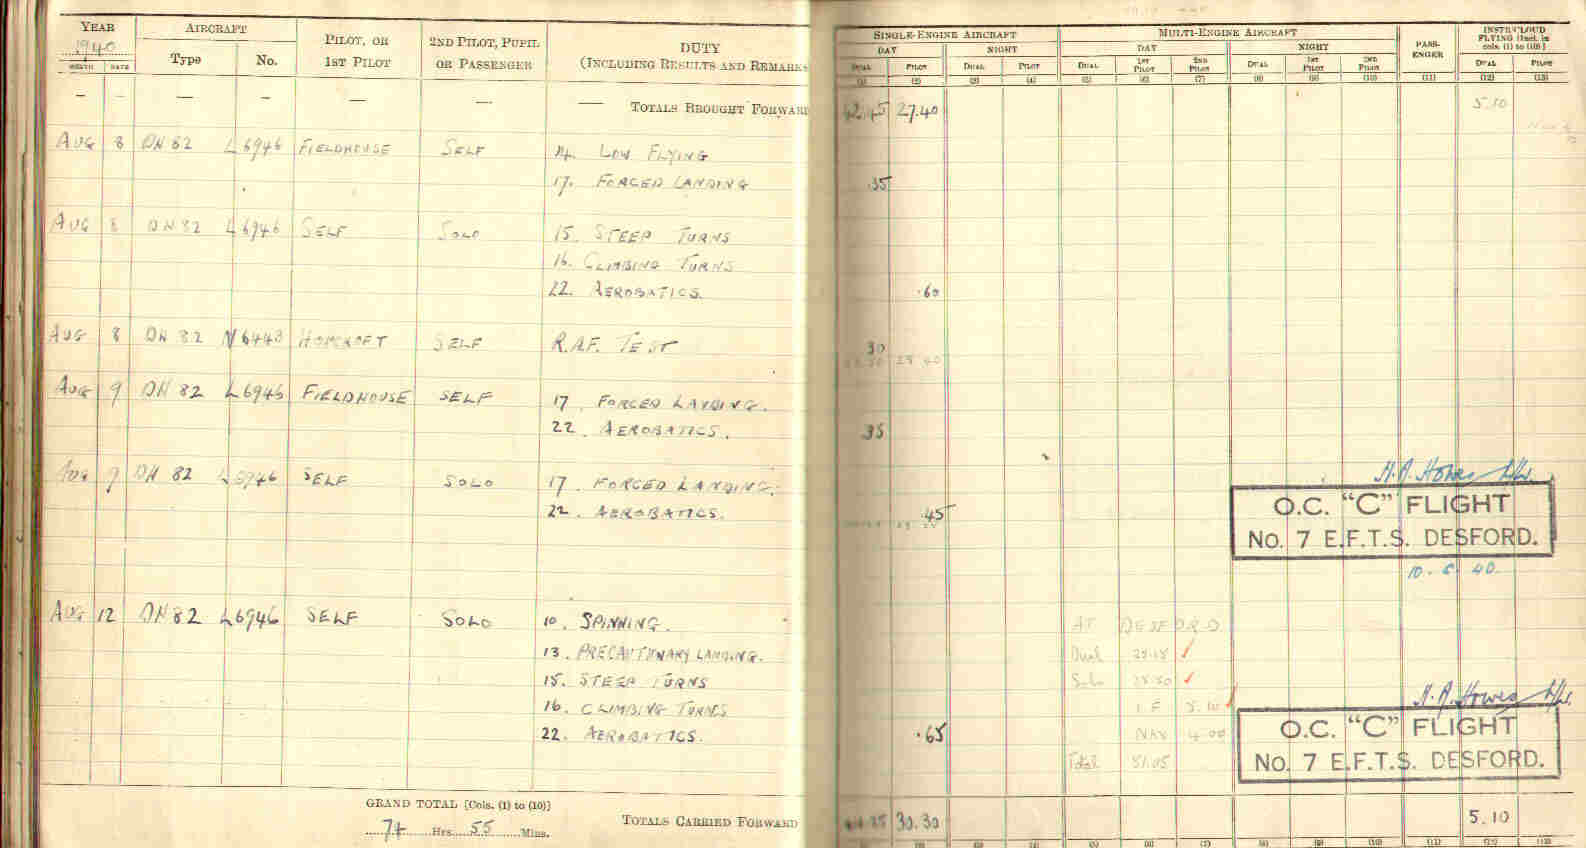 YEAR AIRCRAFT PILOT, OR 1ST PILOT 2ND PILOT, PUPIL OR PASSENGER DUTY (INCLUDING RESULTS AND REMARKS
1940
MONTH DATE Type No.
SINGLE-ENGINE AIRCRAFT MULTI-ENGINE AIRCRAFT PASS-ENGER INSTR/CLOUD FLYING [Incl. in cols. (1) to (10)]
DAY NIGHT DAY NIGHT
DUAL PILOT DUAL PILOT DUAL 1ST PILOT 2ND PILOT DUAL 1ST PILOT 2ND PILOT DUAL PILOT
(1) (2) (3) (4) (5) (6) (7) (8) (9) (10) (11) (12) (13)
— — — — — — — TOTALS BROUGHT FORWARD 42.45 27.40 5.10
AUG 8 DH 82 L6946 FIELDHOUSE SELF 14. LOW FLYING
17. FORCED LANDING .35
AUG 8 DH 82 L6946 SELF SOLO 15. STEEP TURNS
16. CLIMBING TURNS
22. AEROBATICS. .60
AUG 8 DH 82 N6443 SELF R.A.F. TEST 30
AUG 9 DH 82 L6946 FIELDHOUSE SELF 17. FORCED LANDING.
22. AEROBATICS. 35
AUG 9 DH 82 L6946 SELF SOLO 17. FORCED LANDING.
22. AEROBATICS. .45
H.A. Howes F/Lt.
O.C. "C" FLIGHT
No. 7 E.F.T.S. DESFORD.
AUG 12 DH 82 L6946 SELF SOLO 10. SPINNING.
13. PRECAUTIONARY LANDING.
15. STEEP TURNS
16. CLIMBING TURNS
22. AEROBATICS. .65
AT DESFORD
Dual
Solo
I F 5.10
NAV 4.00
Total 51.05
H.A. Howes F/Lt.
O.C. "C" FLIGHT
No. 7 E.F.T.S. DESFORD.
GRAND TOTAL [Cols. (1) to (10)]
74 Hrs. 55 Mins.
TOTALS CARRIED FORWARD 30.30 5.10